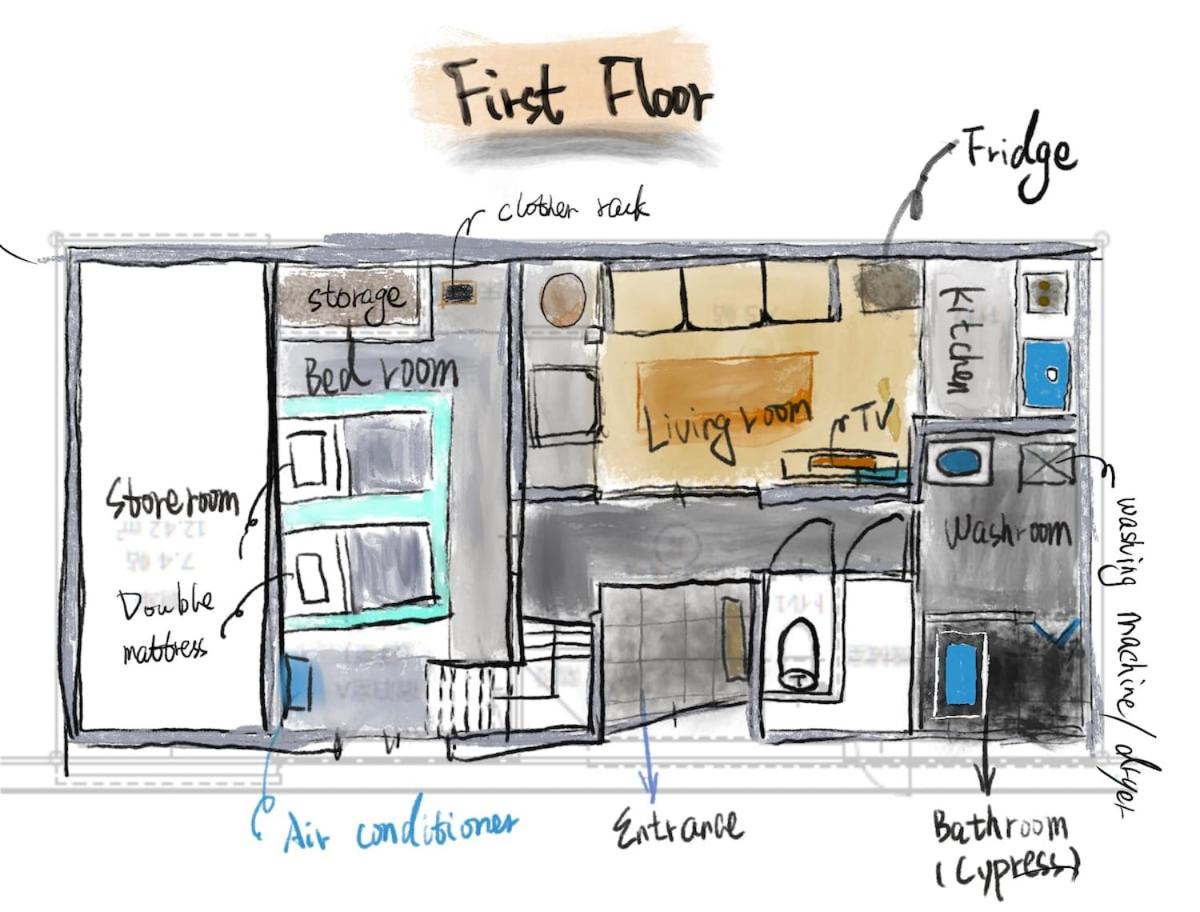 First Floor
Fridge
clother rack
storage
Bedroom
Kitchen
Living room
TV
Storeroom
12.42 m²
7.4
Washroom
Double
mattress
washing machine/dryer
Air conditioner
Entrance
Bathroom
(Cypress)